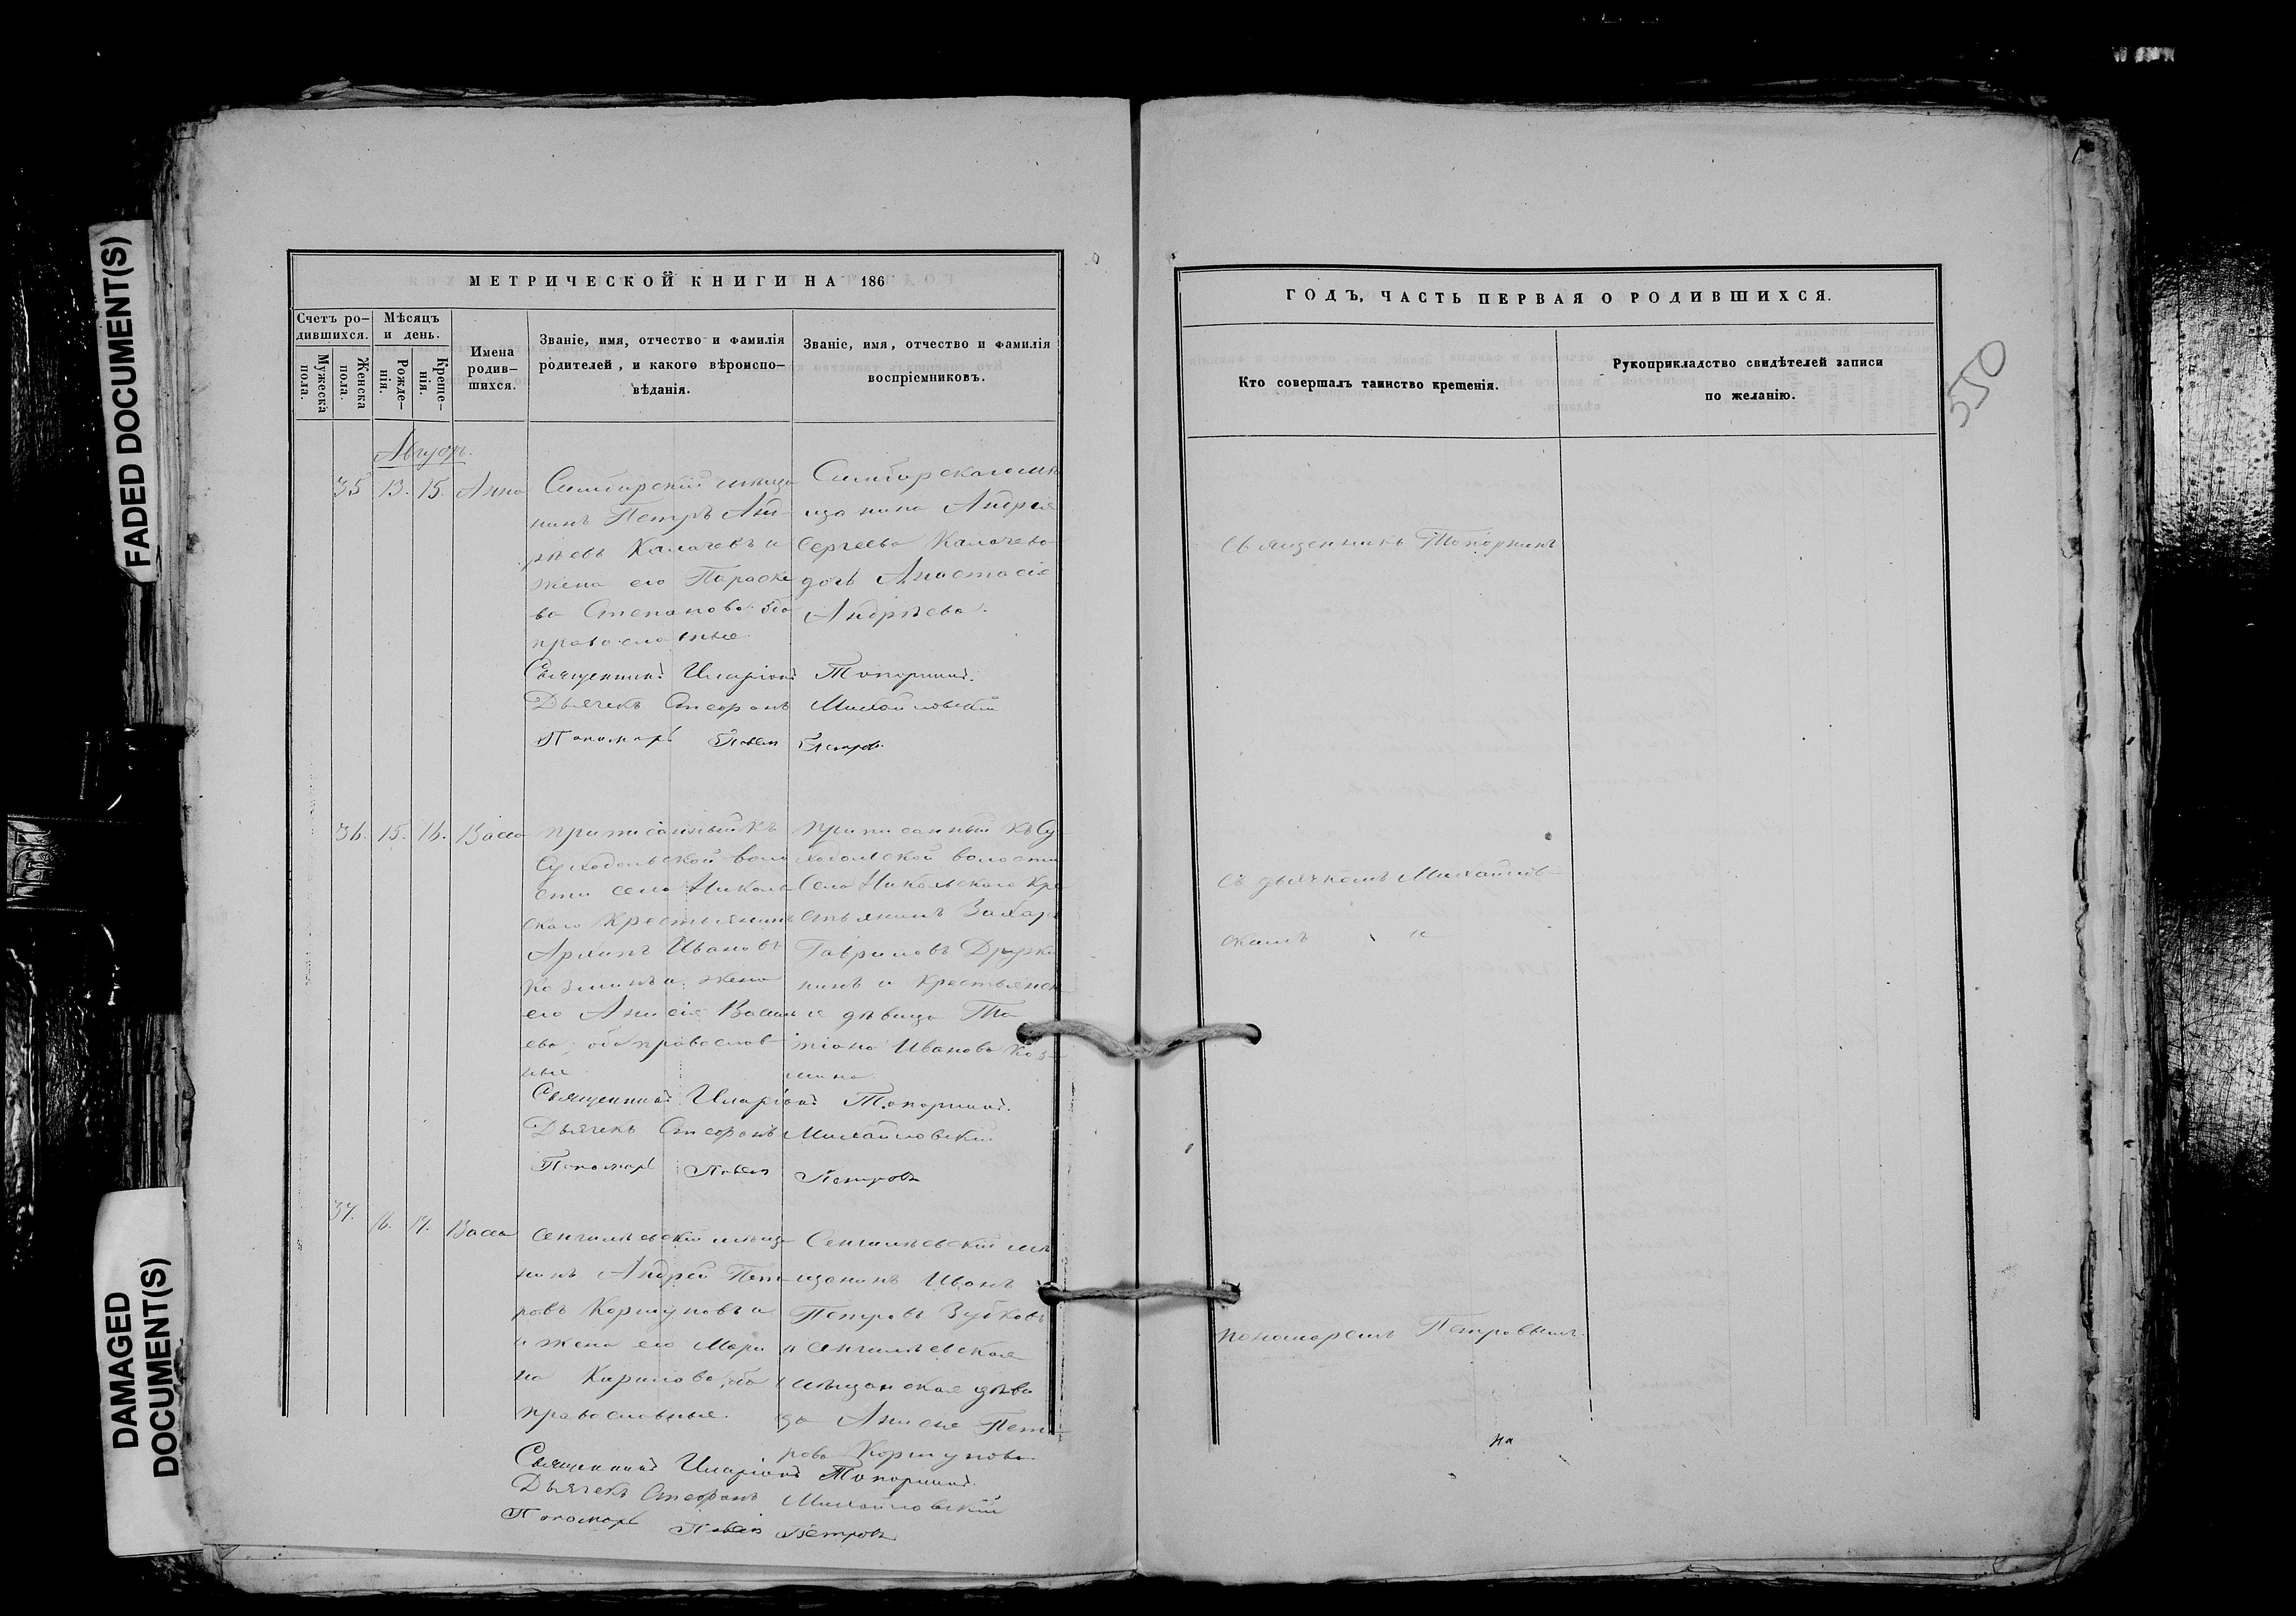 FADED DOCUMENT(S)
DAMAGED
DOCUMENT(S)
МЕТРИЧЕСКОЙ КНИГИ НА 186
Счетъ ро-
дившихся.
Мужеска
пола.
Женска
пола.
Мѣсяцъ
и день.
Рожде-
нія.
Креще-
нія.
Имена
родив-
шихся.
Званіе, имя, отчество и фамилія
родителей, и какого вѣроиспо-
вѣданія.
Званіе, имя, отчество и фамилія
воспріемниковъ.
Августъ.
35 13. 15. Анна
Симбирскій мѣща
нинъ Петръ Анд-
рѣевъ Калачевъ и
жена его Параске
ва Степанова оба
православные
Симбирскаго мѣ
щанина Андрея
Сергеева Калачева
дочь Анастасія
Андрѣева.
Священникъ Иларіонъ Топорнинъ.
Дьячекъ Стефанъ Михайловскій
Пономарь Павелъ Петровъ
36. 15. 16. Васса
приписанный къ
Суходольской воло
сти села Николь
скаго Крестьянинъ
Архипъ Ивановъ
Козминъ и жена
его Анисія Василь
ева, оба православ-
ные
приписанный къ Су
ходольской волости
Села Никольскаго Кре
стьянинъ Захаръ
Гавриловъ Дружи
нинъ и крестьянск
я дѣвица Та
тіана Ивановa Коз-
мина
Священникъ Иларіонъ Топорнинъ.
Дьячекъ Стефанъ Михайловскій
Пономарь Павелъ Петровъ
37. 16. 17. Васса
Сенгилѣевскій мѣща
нинъ Андрей Пет-
ровъ Коршуновъ и
и жена его Мари
на Кирилова, оба
православные.
Сенгилѣевскій мѣ
щанинъ Иванъ
Петровъ Зубковъ
и Сенгилѣевская
мѣщанская дѣви
ца Анисія Пет-
рова Коршунова
Священникъ Иларіонъ Топорнинъ.
Дьячекъ Стефанъ Михайловскій
Пономарь Павелъ Петровъ
ГОДЪ, ЧАСТЬ ПЕРВАЯ О РОДИВШИХСЯ.
Кто совершалъ таинство крещенія.
Рукоприкладство свидѣтелей записи
по желанію.
550
Священникъ Топорнинъ
Съ дьячкомъ Михайлов-
скимъ и
пономаремъ Петровымъ.
на